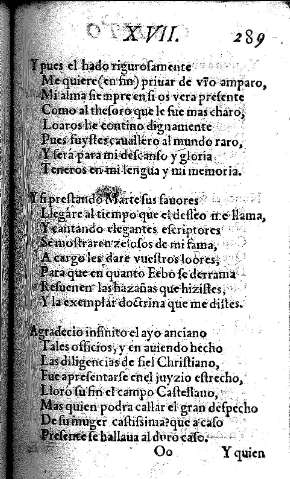 XVII. 289
Y pues el hado rigurosamente
Me quiere (en fin) priuar de vr̃o amparo,
Mi alma siempre en si os vera presente
Como al thesoro que le fue mas charo,
Loaros he contino dignamente
Pues fuystes cauallero al mundo raro,
Y sera para mi descanso y gloria
Teneros en mi lengua y mi memoria.
Y si prestando Marte sus fauores
Llegare al tiempo que el desseo me llama,
Y cantando elegantes escriptores
Se mostraren zelosos de mi fama,
A cargo les dare vuestros loores,
Para que en quanto Febo se derrama
Resuenen las hazañas que hizistes,
Y la exemplar doctrina que me distes.
Agradecio infinito el ayo anciano
Tales officios, y en auiendo hecho
Las diligencias de fiel Christiano,
Fue a presentarse en el juyzio estrecho,
Lloro su fin el campo Castellano,
Mas quien podra callar el gran despecho
De su muger castissima? que a caso
Presente se hallaua al duro caso.
Oo Y quien